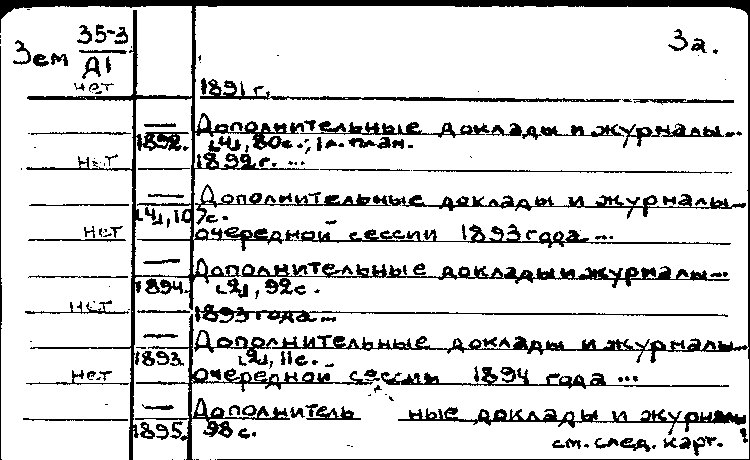 Зем 35-3 3а.
Д1
нет 1891 г.
— Дополнительные доклады и журналы...
1892. [4], 80с., 1л. план.
нет 1892 г. ...
— Дополнительные доклады и журналы...
[4], 107с.
нет очередной сессии 1893 года...
— Дополнительные доклады и журналы...
1894. [2], 92с.
нет 1893 года...
— Дополнительные доклады и журналы...
1893. [2], 11с.
нет очередной сессии 1894 года ...
— Дополнитель ные доклады и журналы
1895. 98 с. см. след. карт.